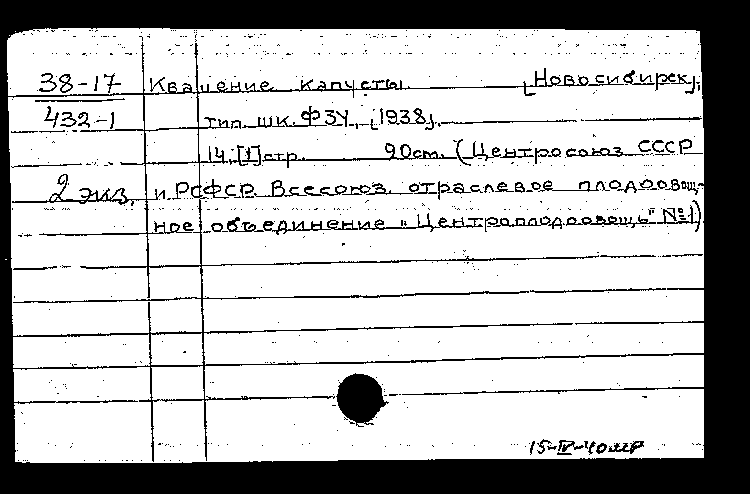 38-17 Квашение капусты. [Новосибирск],
432-1 тип. шк. ФЗУ, [1938].
14, [1] стр. 20 см. (Центросоюз СССР
2 экз. и РСФСР. Всесоюз. отраслевое плодоовощ-
ное объединение „Центроплодоовощь" №1)
15-IV-40